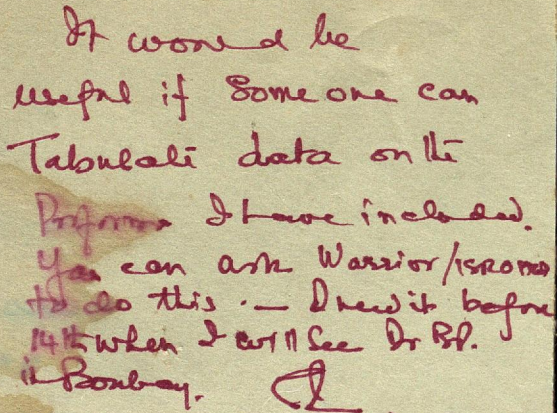 It would be
useful if some one can
Tabulate data on the
Proforma I have included.
You can ask Warrior/ISRO
to do this. — I need it before
14th when I will see Dr BP.
in Bombay.